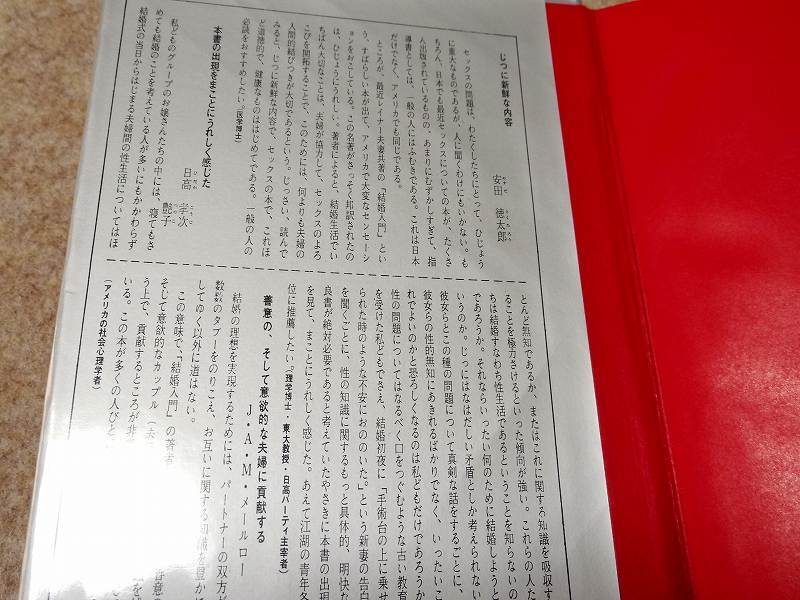 じつに新鮮な内容
安田徳太郎
セックスの問題は、わたくしたちにとって、ひじょう
に重大なものであるが、人に聞くわけにもいかない。も
ちろん、日本でも最近セックスについての本が、たくさ
ん出版されているものの、あまりにむずかしすぎて、指
導書としては、一般の人にはふむきである。これは日本
だけでなく、アメリカでも同じである。
ところが、最近レイナー夫妻共著の「結婚入門」とい
う、すばらしい本が出て、アメリカで大変なセンセーシ
ョンをおこしている。この名著がさっそく邦訳されたの
は、ひじょうにうれしい。著者によると、結婚生活でい
ちばん大切なことは、夫婦が協力して、セックスのよろ
こびを開拓することで、このためには、何よりも夫婦の
人間的結びつきが大切であるという。じっさい、読んで
みると、じつに新鮮な内容で、セックスの本で、これほ
ど道徳的で、健康なものははじめてである。一般の人の
必読をおすすめしたい。(医学博士)
本書の出現をまことにうれしく感じた
日高孝次
艶子
私どものグループのお嬢さんたちの中には、寝てもさ
めても結婚のことを考えている人が多いにもかかわらず
結婚式の当日からはじまる夫婦間の性生活についてはほ
とんど無知であるか、またはこれに関する知識を吸収す
ることを極力さけるといった傾向が強い。これらの人た
ちは結婚すなわち性生活であるということを知らないの
であろうか。それならいったい何のために結婚しようと
いうのか。じつにはなはだしい矛盾としか考えられない
彼女らとこの種の問題について真剣な話をするごとに、
彼女らの性的無知にあきれるばかりでなく、いったいこ
れでよいのかと恐ろしくなるのは私どもだけであろうか
性の問題についてはなるべく口をつぐむような古い教育
を受けた私どもでさえ、結婚初夜に「手術台の上に乗せ
られた時のような不安におののいた」という新妻の告白
を聞くごとに、性の知識に関するもっと具体的、明快な
良書が絶対必要であると考えていたやさきに本書の出現
を見て、まことにうれしく感じた。あえて江湖の青年各
位に推薦したい。(理学博士・東大教授・日高パーティ主宰者)
善意の、そして意欲的な夫婦に貢献する
J・A・M・メールロー
結婚の理想を実現するためには、パートナーの双方が
のタブーをのりこえ、お互いに関する知識を豊かに
してゆく以外に道はない。
この意味で「結婚入門」の著者
そして意欲的なカップル
う上で、貢献するところが非
いる。この本が多くの人びと
(アメリカの社会心理学者)